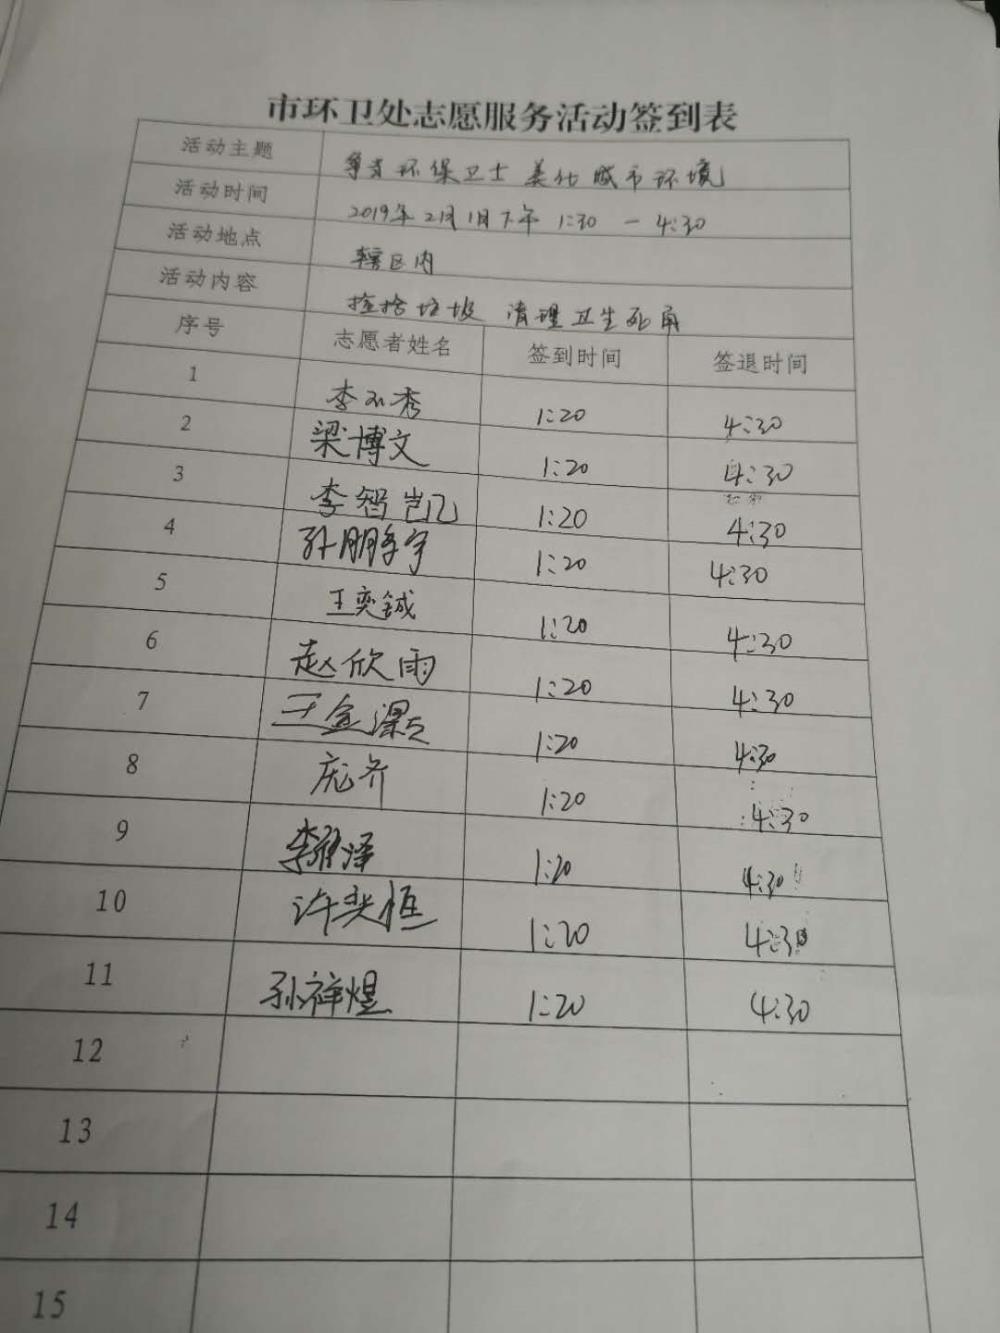 市环卫处志愿服务活动签到表
活动主题 争当环保卫士 美化城市环境
活动时间 2019年2月1日下午 1:30 — 4:30
活动地点 辖区内
活动内容 捡拾垃圾 清理卫生死角
序号 志愿者姓名 签到时间 签退时间
1 李 秀 1:20 4:30
2 梁博文 1:20 4:30
3 李智凯 1:20 4:30
4 孙鹏 宇 1:20 4:30
5 王奕铖 1:20 4:30
6 赵欣雨 1:20 4:30
7 王 1:20 4:30
8 庞齐 1:20 4:30
9 李雅泽 1:20 4:30
10 许奕恒 1:20 4:30
11 孙祥煜 1:20 4:30
12
13
14
15